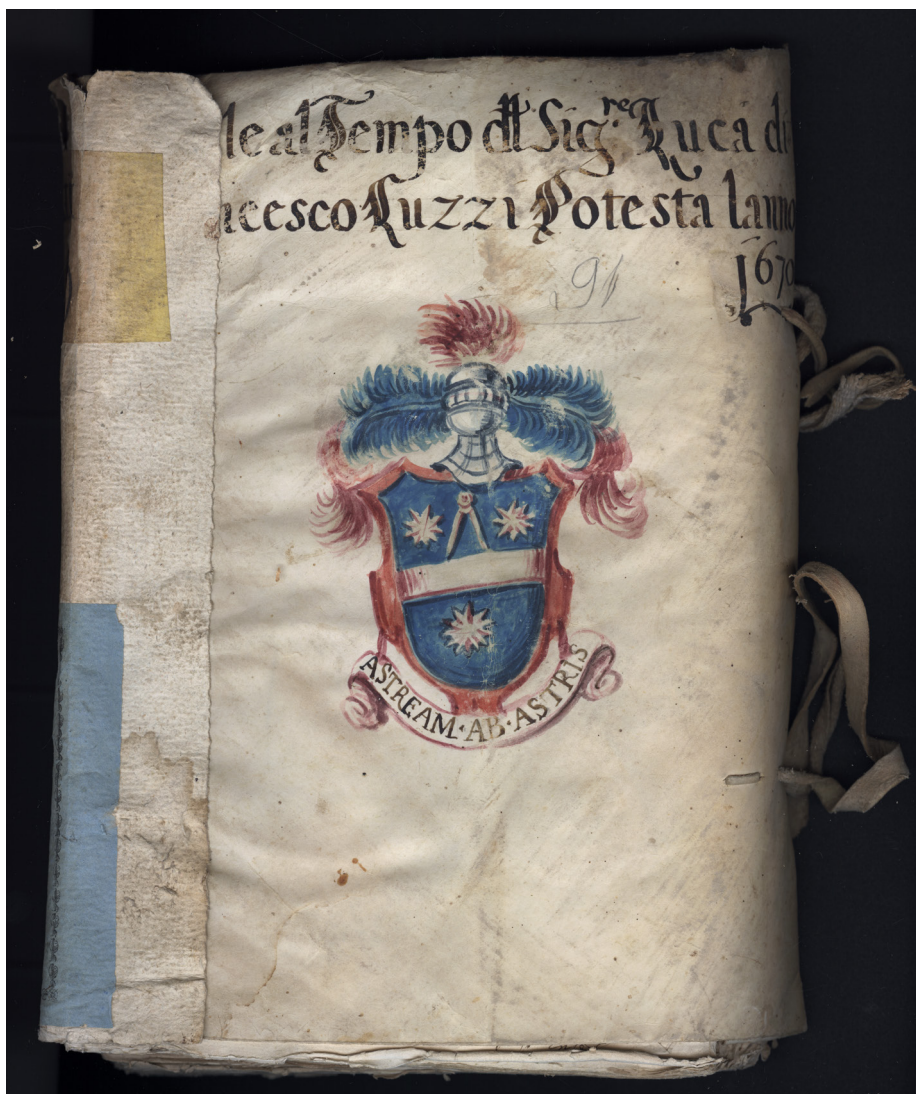 le al Tempo dll Sig.re Luca di
ncesco Luzzi Potesta lanno
1670
91
ASTREAM·AB·ASTRIS